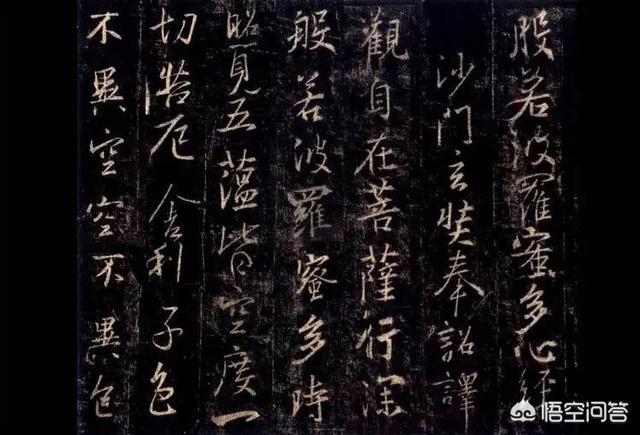 般若波羅蜜多心經
沙門玄奘奉詔譯
觀自在菩薩行深
般若波羅蜜多時
照見五蘊皆空度一
切苦厄舍利子色
不異空空不異色
悟空问答